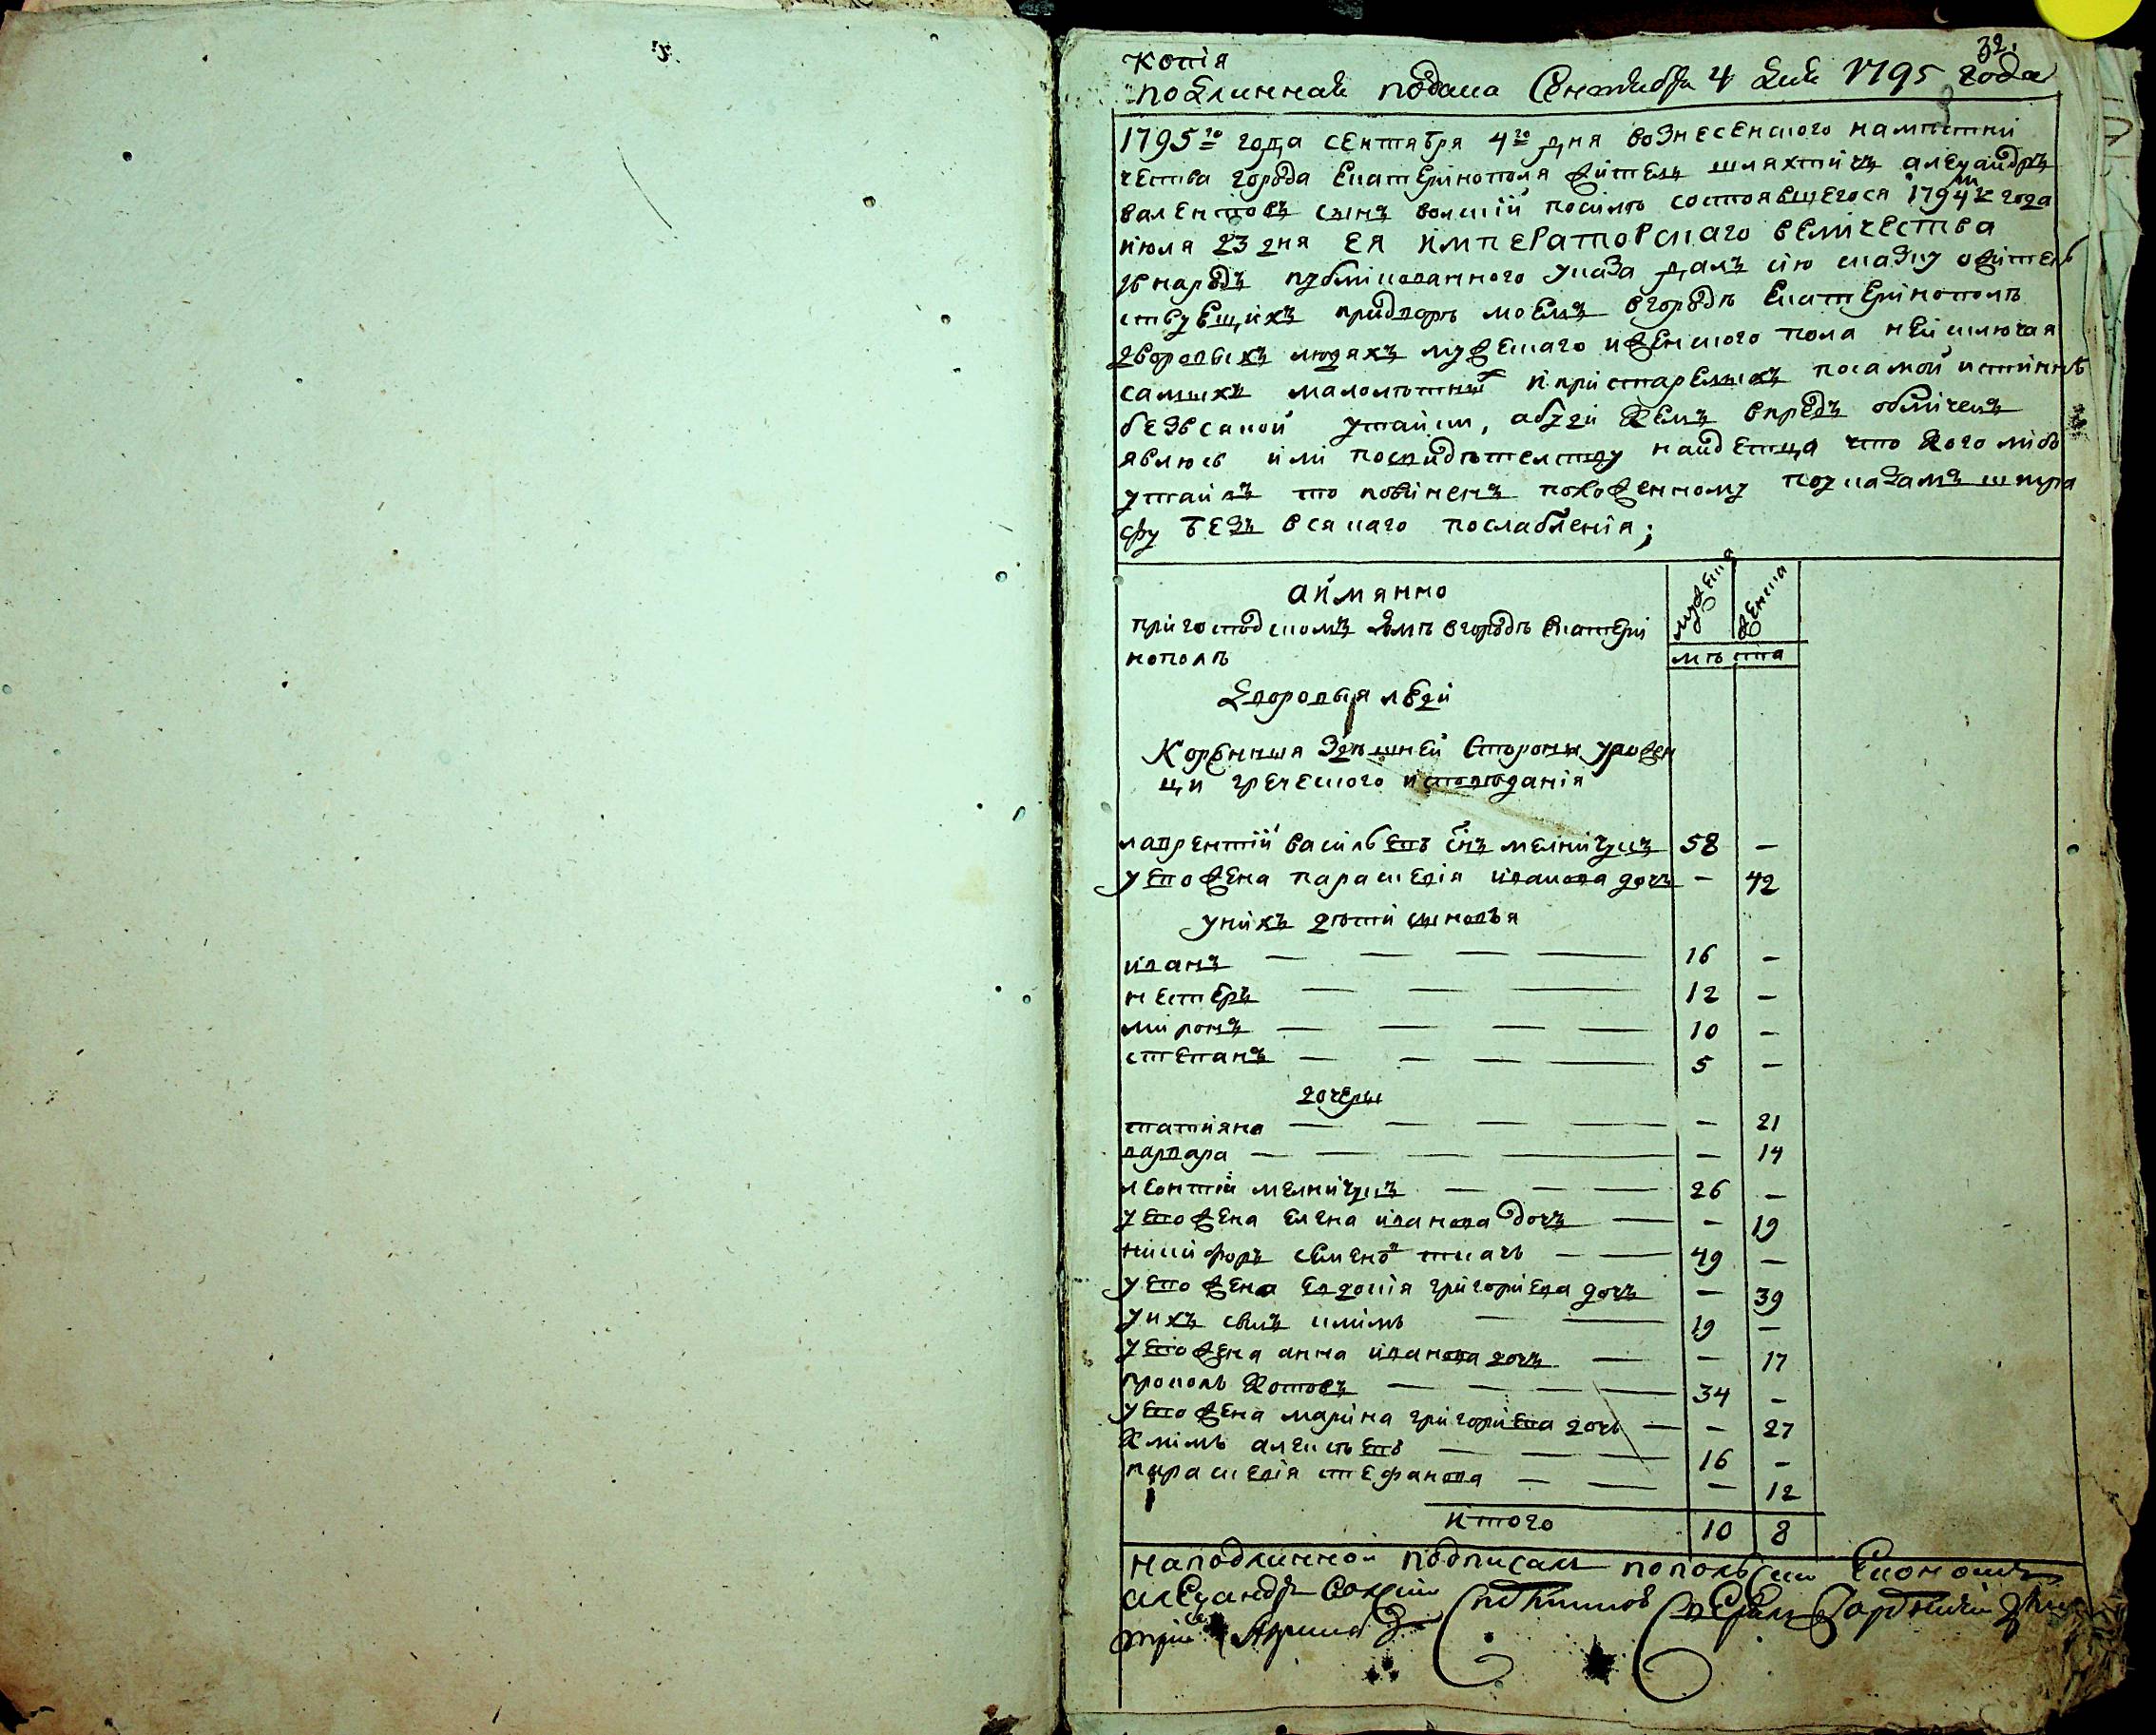 32.
копія
подлинная подана Сентября 4 дня 1795 года
1795го года сентября 4го дня вознесенского намѣстни
чества города Екатеринополя житель шляхтичъ алеѯандръ
валентовъ сынъ волскій посилѣ состоявшегося 1794м года
июля 23 дня ея императорскаго величества
внародъ публикованного указа далъ сию сказку ожитель
ствующихъ придворѣ моемъ вгородѣ Екатеринополѣ
дворовыхъ людяхъ мужескаго иженского пола неиключая
самыхъ малолѣтныхъ ипристарелыхъ посамой истиннѣ
безвсякой утайки, абуди кемъ впредъ обличенъ
явлюсь или посвидѣтелству найдетца что кого либо
утаилъ то повиненъ положенному поуказамъ штра
фу безъ всякаго послабленія;
аймянно
мужеска
женска
пригосподскомъ домѣ вгородѣ Екатери
нополѣ
лѣта
Дворовыя люди
Коренныя здѣшней стороны урожен
ци греческого исповѣданія
лаврентій васильевъ снъ мелничукъ 58 —
уево жена параскевія иванова дочь — 42
унихъ дѣти сыновья
иванъ 16 —
нестеръ 12 —
миронъ 10 —
степанъ 5 —
дочеры
татияна — 21
варвара — 14
леонтій мелничукъ 26 —
уево жена елена иванова дочь — 19
никифоръ семеновъ ткачь 49 —
уево жена евдокія григориева дочь — 39
уихъ сынъ климъ 19 —
уево жена анна иванова дочь — 17
прокопъ котовъ 34 —
уево жена марина григориева дочь — 27
климъ алексѣевъ 16 —
параскевія стефанова — 12
итого 10 8
наподлинной подписалъ попольски Економъ
алеѯандръ Волскій